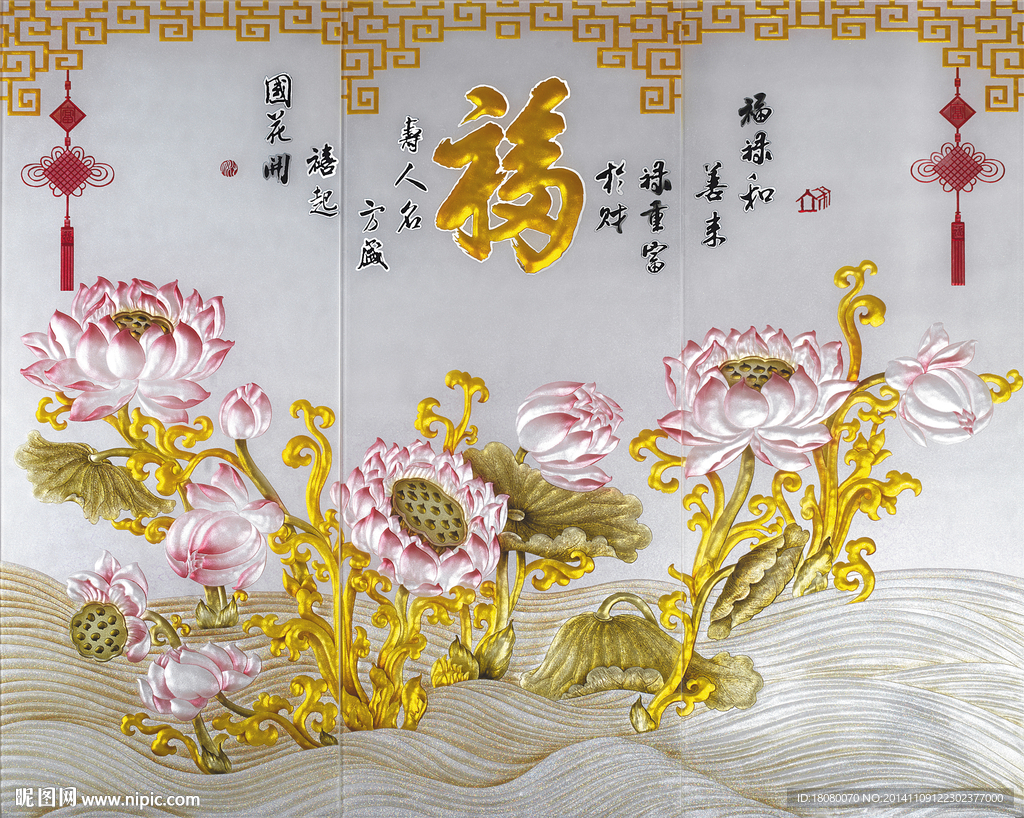 福禄和
善来
禄重富
於财
福
壽人名
方盛
禧起
國花開
昵图网 www.nipic.com
ID:18080070 NO:20141109122302377000